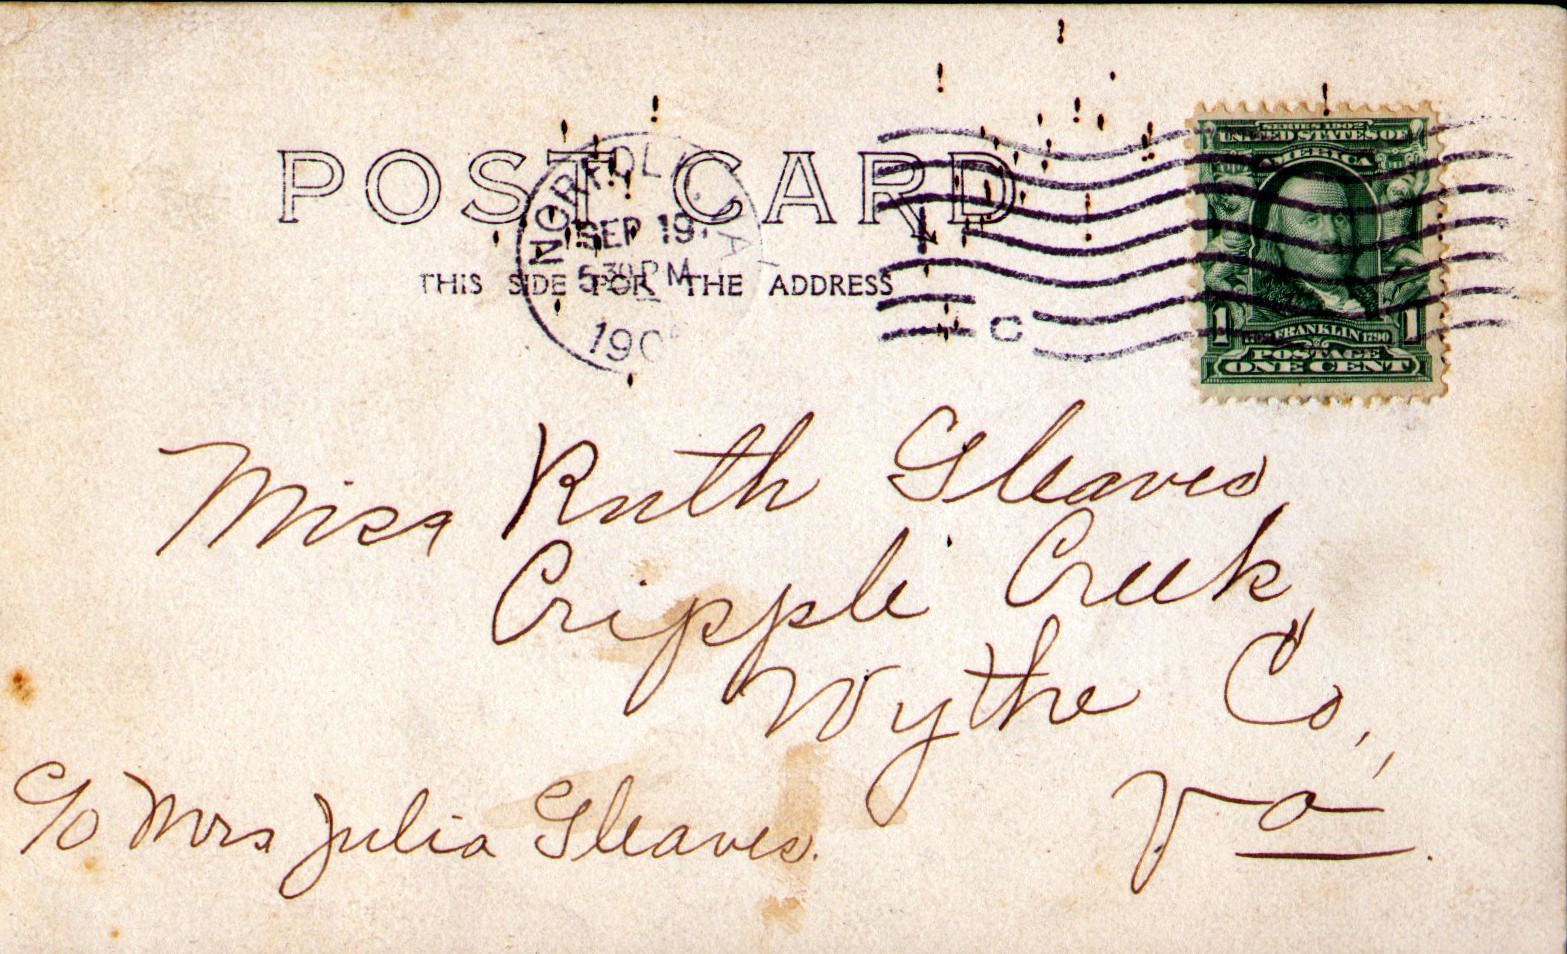 POST CARD
THIS SIDE FOR THE ADDRESS
NORFOLK, VA.
SEP 19
5-30 P M
190
C
SERIES 1902
UNITED STATES OF
AMERICA
1 FRANKLIN 1790 1
POSTAGE
ONE CENT
Miss Ruth Gleaves,
Cripple Creek,
Wythe Co.,
Va.
c/o Mrs Julia Gleaves.